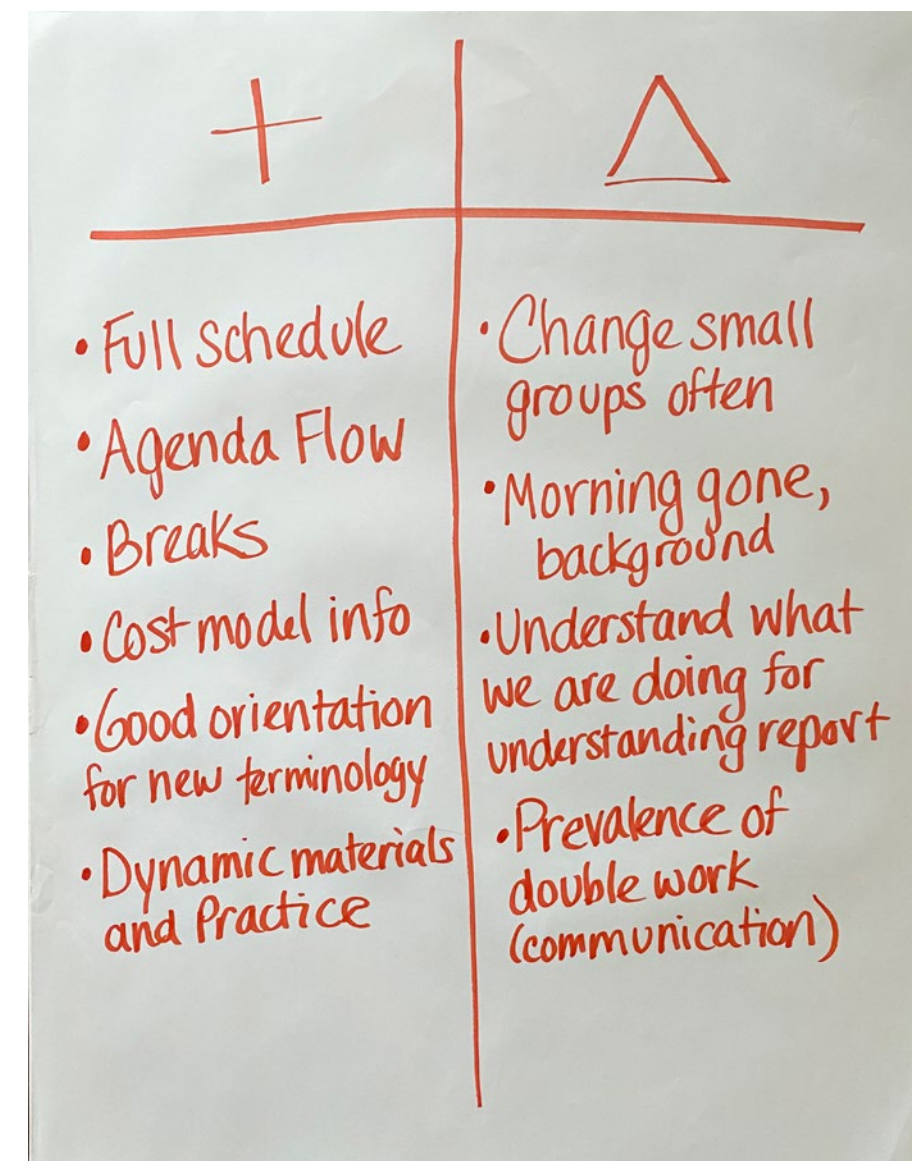 +
Δ
• Full schedule
• Agenda Flow
• Breaks
• Cost model info
• Good orientation
for new terminology
• Dynamic materials
and Practice
• Change small
groups often
• Morning gone,
background
• Understand what
we are doing for
understanding report
• Prevalence of
double work
(communication)